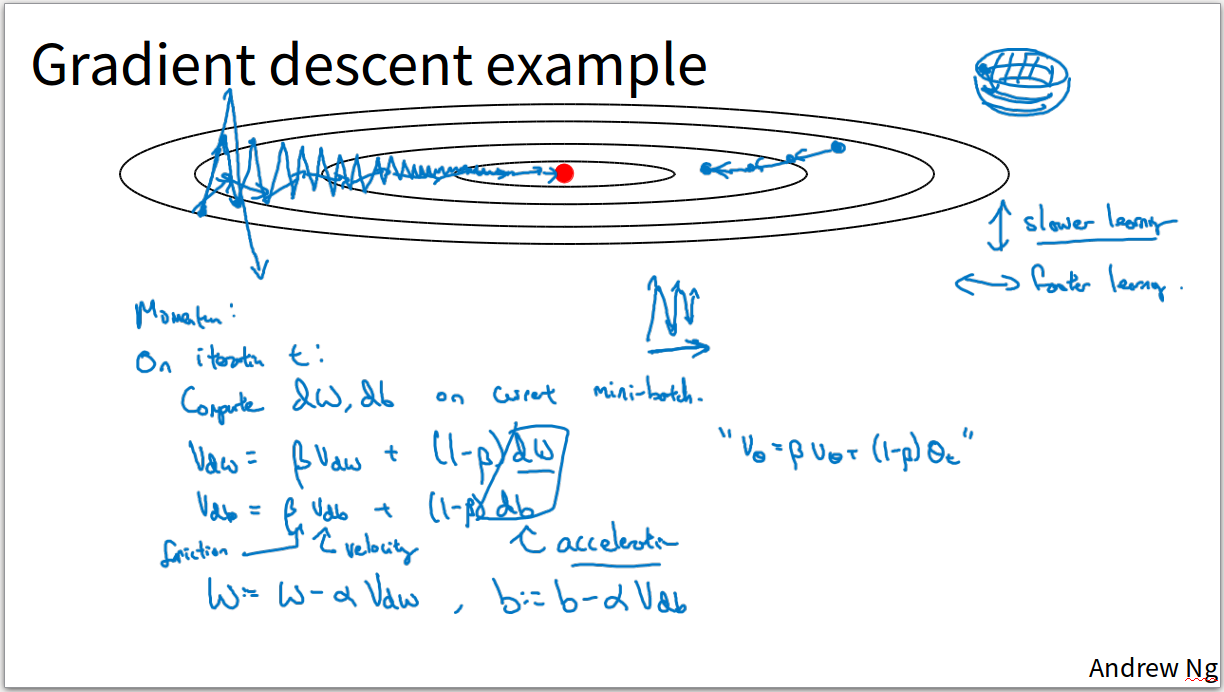 Gradient descent example
slower learning
faster learning.
Momentum:
On iteration t:
Compute dW, db on current mini-batch.
Vdw = β Vdw + (1-β) dW
"Vθ = β Vθ + (1-β) θt"
Vdb = β Vdb + (1-β) db
friction velocity acceleration
W:= W - α Vdw , b:= b - α Vdb
Andrew Ng